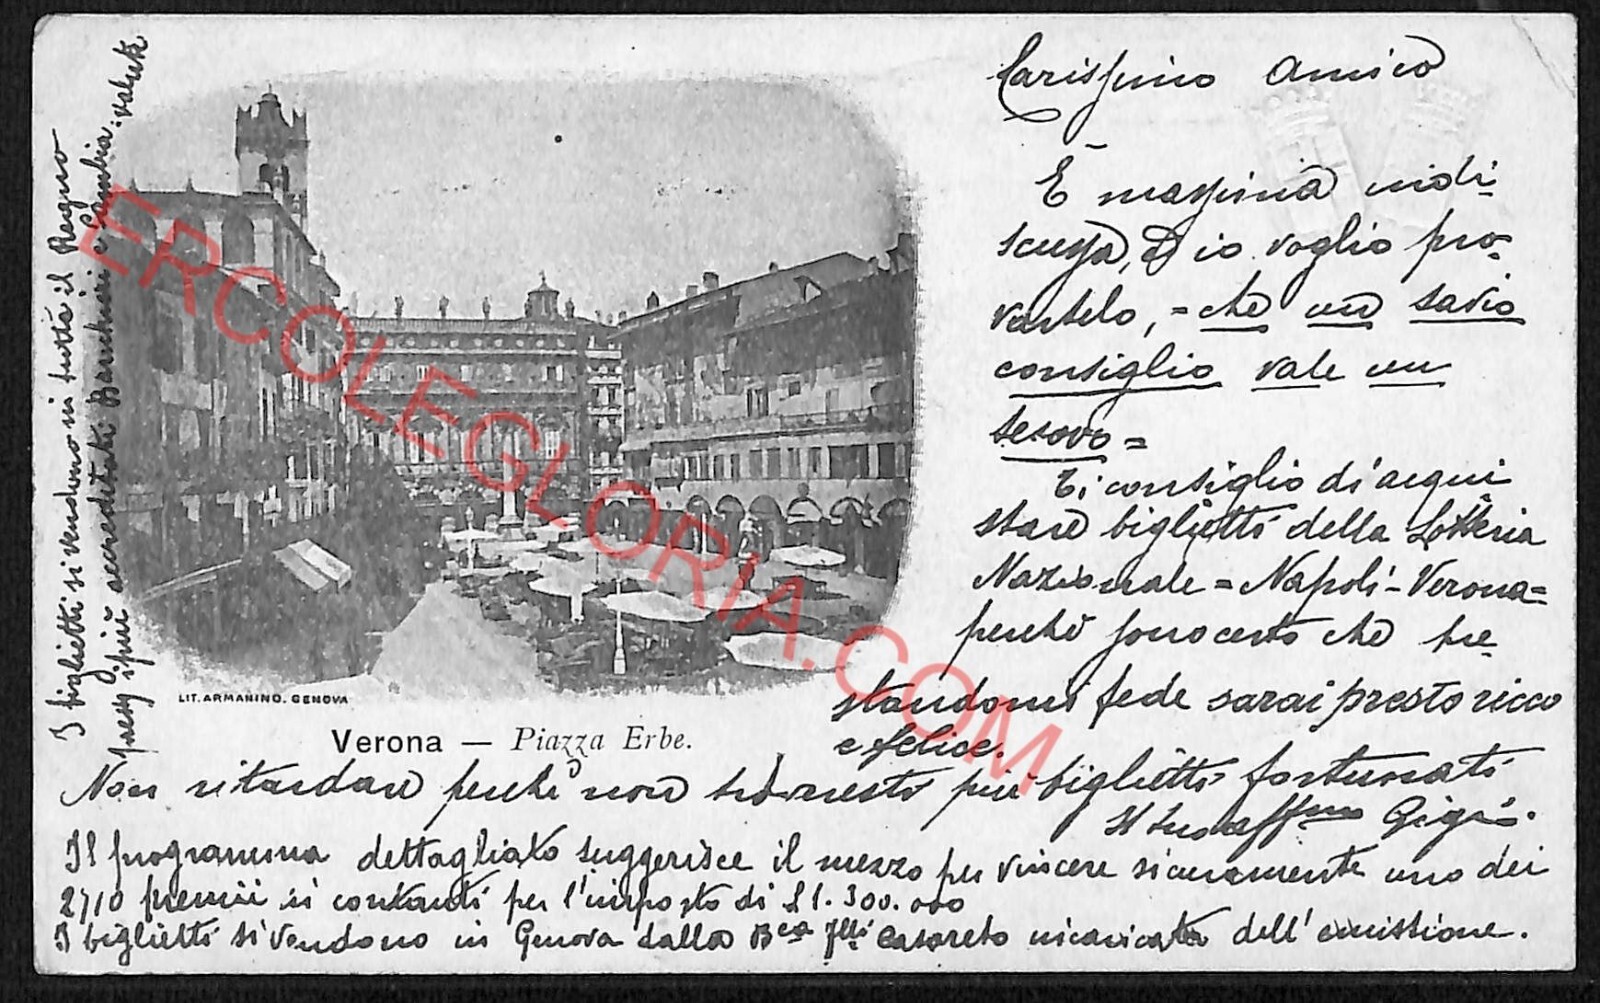 Carissimo Amico
È massima indi-
scussa, ed io voglio pro-
vartelo, = che un savio
consiglio vale un
tesoro =
Ti consiglio di acqui
stare biglietti della Lotteria
Nazionale = Napoli - Verona =
perchè sono certo che pre-
standomi fede sarai presto ricco
e felice.
Non ritardare perchè non troveresti più biglietti fortunati
Il tuo affmo Gigi.
Il programma dettagliato suggerisce il mezzo per vincere sicuramente uno dei
2710 premii in contanti per l'importo di £ 1.300.000
I biglietti si vendono in Genova dalla Bca Flli Casareto incaricata dell'emissione.
I biglietti si vendono in tutto il Regno
i più accreditati Banchieri e Cambia valute
LIT. ARMANINO. GENOVA
Verona — Piazza Erbe.
ERCOLEGLORIA.COM